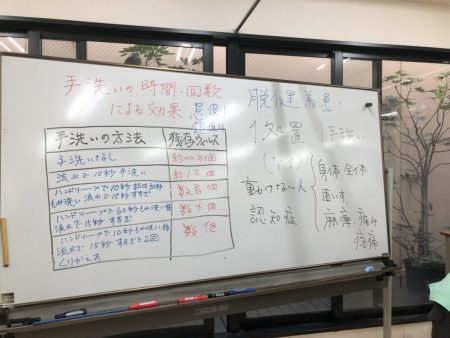 手洗いの時間・回数
による効果
手洗いの方法 残存ウィルス
手洗いなし 約100万個
流水で10秒手洗い 約1万個
ハンドソープで10秒又は30秒
もみ洗い流水で15秒すすぎ 数百個
ハンドソープで60秒もみ洗い後
流水で15秒すすぎ 数十個
ハンドソープで10秒もみ洗い後
流水で15秒すすぎを2回
くりかえす 数個
脱健着患
処置 手洗い
動けない人
認知症
身体全体
重い
麻痺 痛み
疼痛